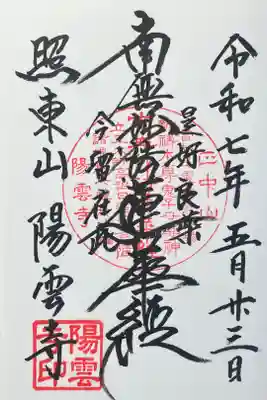 令和七年 五月廿三日
是好良薬
南無妙法蓮華經
今留在此
照東山 陽雲寺
正中山
陽雲寺
陽雲
寺印